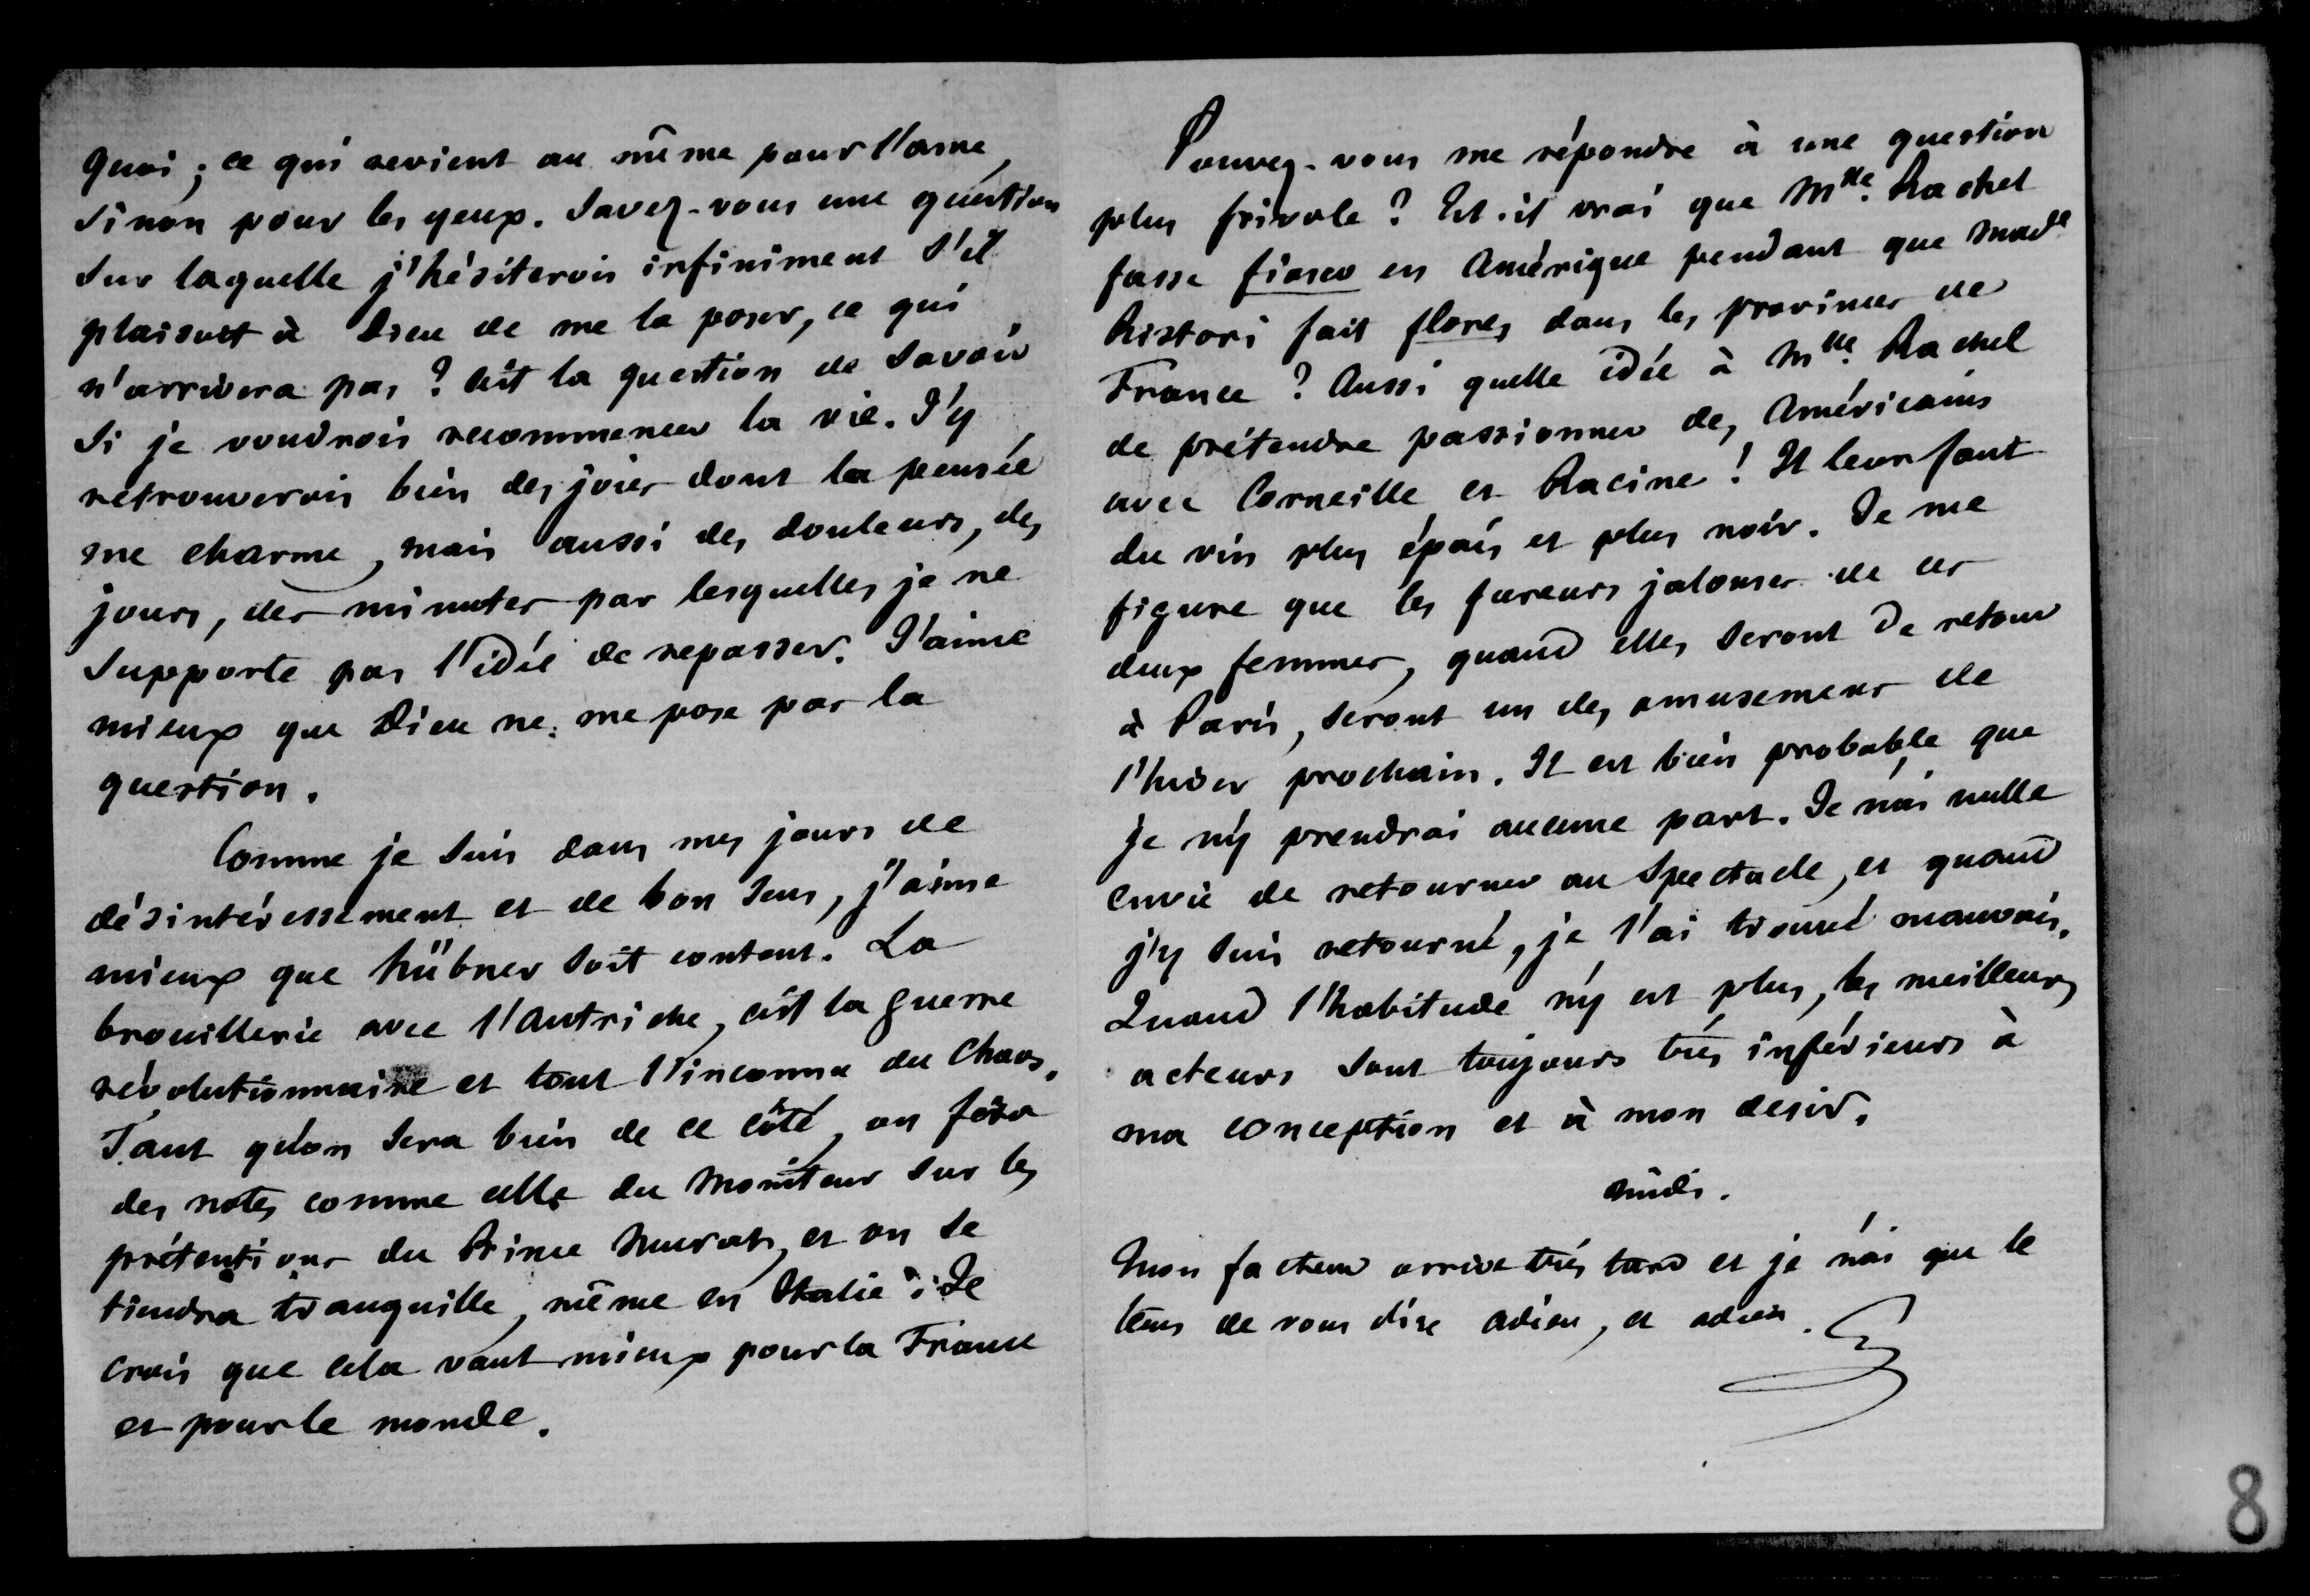 quoi ; ce qui revient au même pour l'ame,
sinon pour les yeux. Savez-vous une question
sur laquelle j'hésiterois infiniment s'il
plaisoit à Dieu de me la poser, ce qui
n'arrivera pas ? C'est la question de savoir
si je voudrois recommencer la vie. J'y
retrouverois bien des joies dont la pensée
me charme, mais aussi des douleurs, des
jours, des minutes par lesquelles je ne
supporte pas l'idée de repasser. J'aime
mieux que Dieu ne me pose pas la
question.
Comme je suis dans mes jours de
désintéressement et de bon sens, j'aime
mieux que Hübner soit content. La
brouillerie avec l'Autriche, c'est la guerre
révolutionnaire et tout l'inconnu du Chaos.
Tant qu'on sera bien de ce côté, on fera
des notes comme celle du Moniteur sur les
prétentions du Prince Murat, et on se
tiendra tranquille, même en Italie ; Je
crois que cela vaut mieux pour la France
et pour le monde.
Pouvez-vous me répondre à une question
plus frivole ? Est-il vrai que Mlle. Rachel
fasse fiasco en Amérique pendant que Made
Ristori fait flores dans les provinces de
France ? Aussi quelle idée à Mlle. Rachel
de prétendre passionner des Américains
avec Corneille et Racine ! Il leur faut
du vin plus épais et plus noir. Je me
figure que les fureurs jalouses de ces
deux femmes, quand elles seront de retour
à Paris, seront un des amusemens de
l'hiver prochain. Il est bien probable que
je n'y prendrai aucune part. Je n'ai nulle
envie de retourner au spectacle, et quand
j'y suis retourné, je l'ai trouvé mauvais.
Quand l'habitude n'y est plus, les meilleurs
acteurs sont toujours très inférieurs à
ma conception et à mon desir.
Midi.
Mon facteur arrive très tard et je n'ai que le
tems de vous dire adieu, et adieu.
8